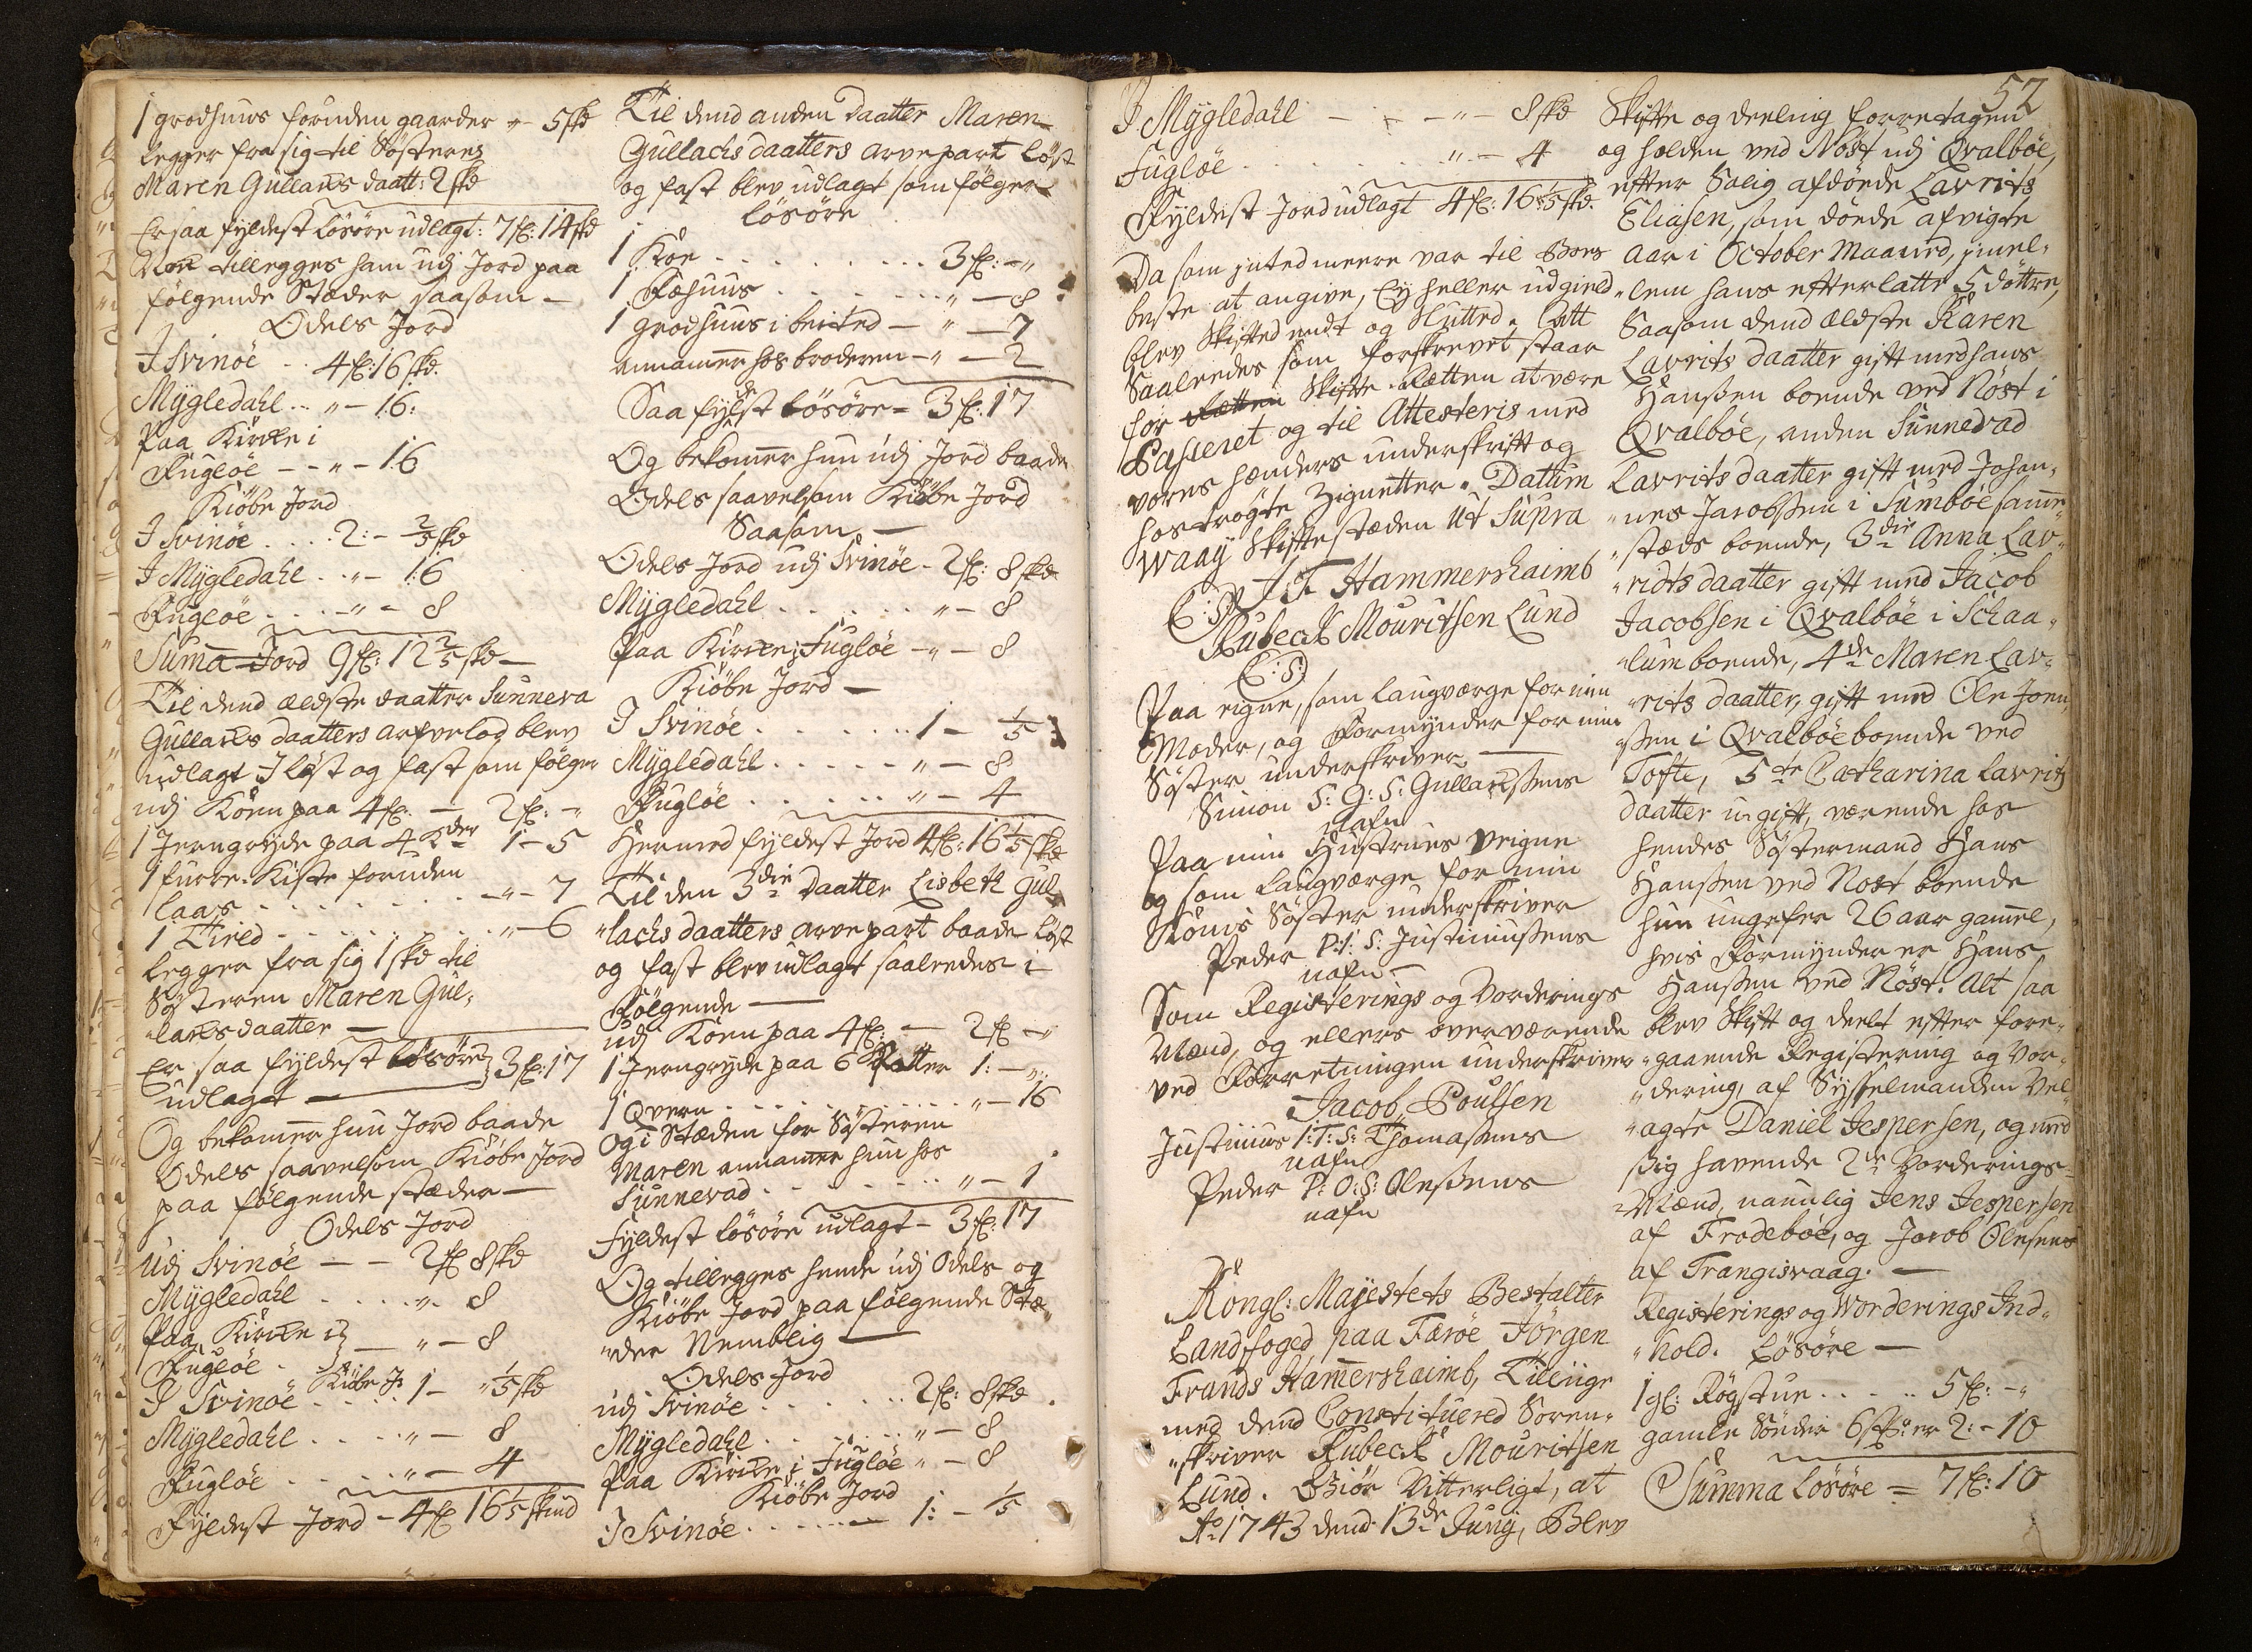 1 grodhuus foruden gaarder „ 5 skd
legger fra sig til Søsteren
Maren Gullacks daatt: 2 skd
Er saa fyldest løsøre udlagt: 7 fl: 14 skd
Noe tillegges ham udj Jord paa
følgende Stæder saasom —
Odels Jord
I Svinöe .. 4 fl: 16 skd.
Mÿgledahl .. „ – 16:
Paa Kircke i
Fugløe – – „ – 16
Kiöbe Jord
I Svinöe .... 2: – 2/5 skd
I Mÿgledahl .. „ – 16
Fuglöe .... – „ – 8
Suma Jord 9 fl: 12 2/5 skd —
Til dend ældste daatter Sunneva
Gullacks daatters arfvelod blev
udlagt I løst og fast som følger
udj Koen paa 4 fl. — 2 fl: – „
1 Jerngrÿde paa 4 Kder 1 – 5
1 furre-Kiste foruden
laas ........ – „ – 7
1 Tired – ........ „ – 6
legger fra sig 1 skd til
Søsteren Maren Gul„
„lacks daatter —
Er saa fyldest løsöre 3 fl: 17
udlagt —
Og bekommer hun Jord baade
Odels saavelsom Kiöbe Jord
paa følgende stæder —
Odels Jord
Udj Svinöe – – 2 fl 8 skd
Mÿgledahl .... „ – 8
Paa Kircke i
Fuglöe . — „ – 8
Kiöbe J:
I Svinöe .... 1 – „ 1/5 skd
Mÿgledahl .... „ – 8
Fuglöe .... „ – 4
Fyldest Jord – 4 fl 16 1/5 skind
Til dend anden Daatter Maren
Gullachs daatters arvepart løst
og fast blev udlagt som følger
løsöre
1 Koe ........ 3 fl: – „
1 Fæhuus ....... „ – 8
1 grodhuus i beited – „ – 7
annammer hos broderen – „ – 2
Saa fyldest løsöre – 3 fl: 17
Og bekommer hun udj Jord baade
Odels saavelsom Kiöbe Jord
Saasom —
Odels Jord udj Svinöe – 2 fl: 8 skd
Mÿgledahl ...... „ – 8
Paa Kircke i Fuglöe – „ – 8
Kiöbe Jord —
I Svinöe ....... 1 – 1/5
Mÿgledahl ..... „ – 8
Fuglöe ...... „ – 4
Hermed fyldest Jord 4 fl: 16 1/5 skd
Til den 3die Daatter Lisbeth Gul„
„lachs daatters arvepart baade løst
og fast blev udlagt saaledes i
Følgende —
udj Koen paa 4 fl: — 2 fl – „
1 Jerngryde paa 6 Potter 1: – „:
1 Qvern ........... „ – 16
Og i Stæden for Søsteren
Maren annammer hun hos
Sunnevad ........ „ – 1
Fyldest løsöre udlagt – 3 fl: 17
Og tillegges hende udj Odels og
Kiöbe Jord paa følgende Stæ„
„der Nemblig —
Odels Jord
udj Svinöe ...... 2 fl: 8 skd
Mÿgledahl ....... „ – 8
Paa Kircke i Fuglöe „ – 8
Kiöbe Jord
I Svinöe ...... 1: – 1/5
I Mÿgledahl — – – „ – 8 skd
Fuglöe ........ „ – 4
Fyldest Jord udlagt 4 fl: 16 1/5 skd.
Da som inted meere var til Boens
beste at angive, Eÿ heller udgield
blev Skifted endt og Slutted. latt
Saaledes som forskrevet staar
for Rætten Skifte-Rætten at være
Passeret og til Attesteris med
vores hænders underskrift og
hoströgte Zignetter. Datum
Waaÿ Skiftestæden Ut Supra
J F Hammershaimb
(L:S)
Rubeck Mouritsen Lund
(L:S)
Paa eigne, som laugværge for min
Moder, og Formÿnder for min
Søster underskriver. —
Simon S: G: S: Gullacksens
nafn
Paa min Hustrues Veigne
og som laugværge for min
Kones Søster underskriver
Peder P: J: S: Justinussens
nafn —
Som Registerings og Vorderings
Mænd, og ellers overværende
ved Forretningen underskriver
Jacob Poulsen
Justinus J: T: S: Thomasens
nafn
Peder P: O: S: Olesens
nafn
Kongl: Maÿestets Bestalter
Landfoged paa Færöe Jörgen
Frands Hammershaimb, Tillige
med dend Constituered Soren„
„skriver Rubeck Mouritsen
Lund. Giör Vitterligt, at
Ao 1743 dend 13de Junÿ, Blev
52
Skifte og deeling forretagen
og holden ved Nöst udj Qvalböe,
efter Salig afdöede Lavrits
Eliasen, som döede afvigte
Aar i October Maaned, imel„
„lem hans efterlatte 5 döttre,
Saasom dend ældste Karen
Lavrits daatter gift med hans
Hanßen boende ved Nöst i
Qvalböe, anden Sunnevad
Lavrits daatter gift med Johan„
„nes Jacobßen i Sumböe samme„
„stæds boende, 3die Anna Lav„
„ridts daatter gift med Jacob
Jacobsen i Qvalböe i Schaa„
„lum boende, 4de Maren Lav„
„rits daatter, gift med Ole Joen„
„ßen i Qvalböe boende ved
Tofte, 5te Catharina Lavrits
daatter ugift, værende hos
hendes Søstermand Hans
Hanßen ved Nöst boende
hun ungefer 26 aar gammel,
hvis Formynder er Hans
Hanßen ved Nöst. Alt saa
blev Skift og deelt efter fore„
„gaaende Registering og Vor„
„dering, af Sysselmanden Vel„
„agte Daniel Jespersen, og med
ßig havende 2de Vorderings„
Mænd, naunlig Jens Jespersen
af Frodeböe, og Jacob Olesens
af Trangisvaag. —
Registerings og Worderings Ind„
„hold. Løsöre —
1 gl: Røgstue ..... 5 fl: – „
gamle 6 er 2: – 10
Summa Løsöre = 7 fl: 10